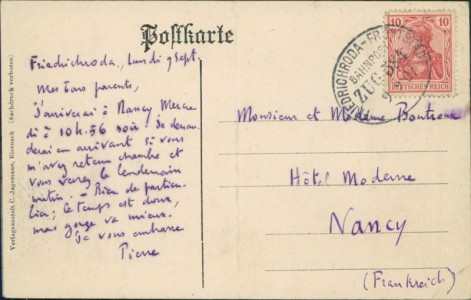 Postkarte
Friedrichroda, lundi 9 Sept.
Mes bons parents,
J'arriverai à Nancy Mercre
di à 10h.56 soir. Je deman
derai en arrivant si vous
m'avez retenu chambre et
vous verrez le lendemain
matin. - Rien de particu
lier; le temps est doux,
ma gorge va mieux.
Je vous embrasse
Pierre
Monsieur et Madame Boutroux
Hôtel Moderne
Nancy
(Frankreich)
10 10
DEUTSCHES REICH
FRIEDRICHRODA-FRÖTTSTEDT
BAHNPOST
ZUG 594
Verlagsanstalt C. Jagemann, Eisenach (Nachdruck verboten.)